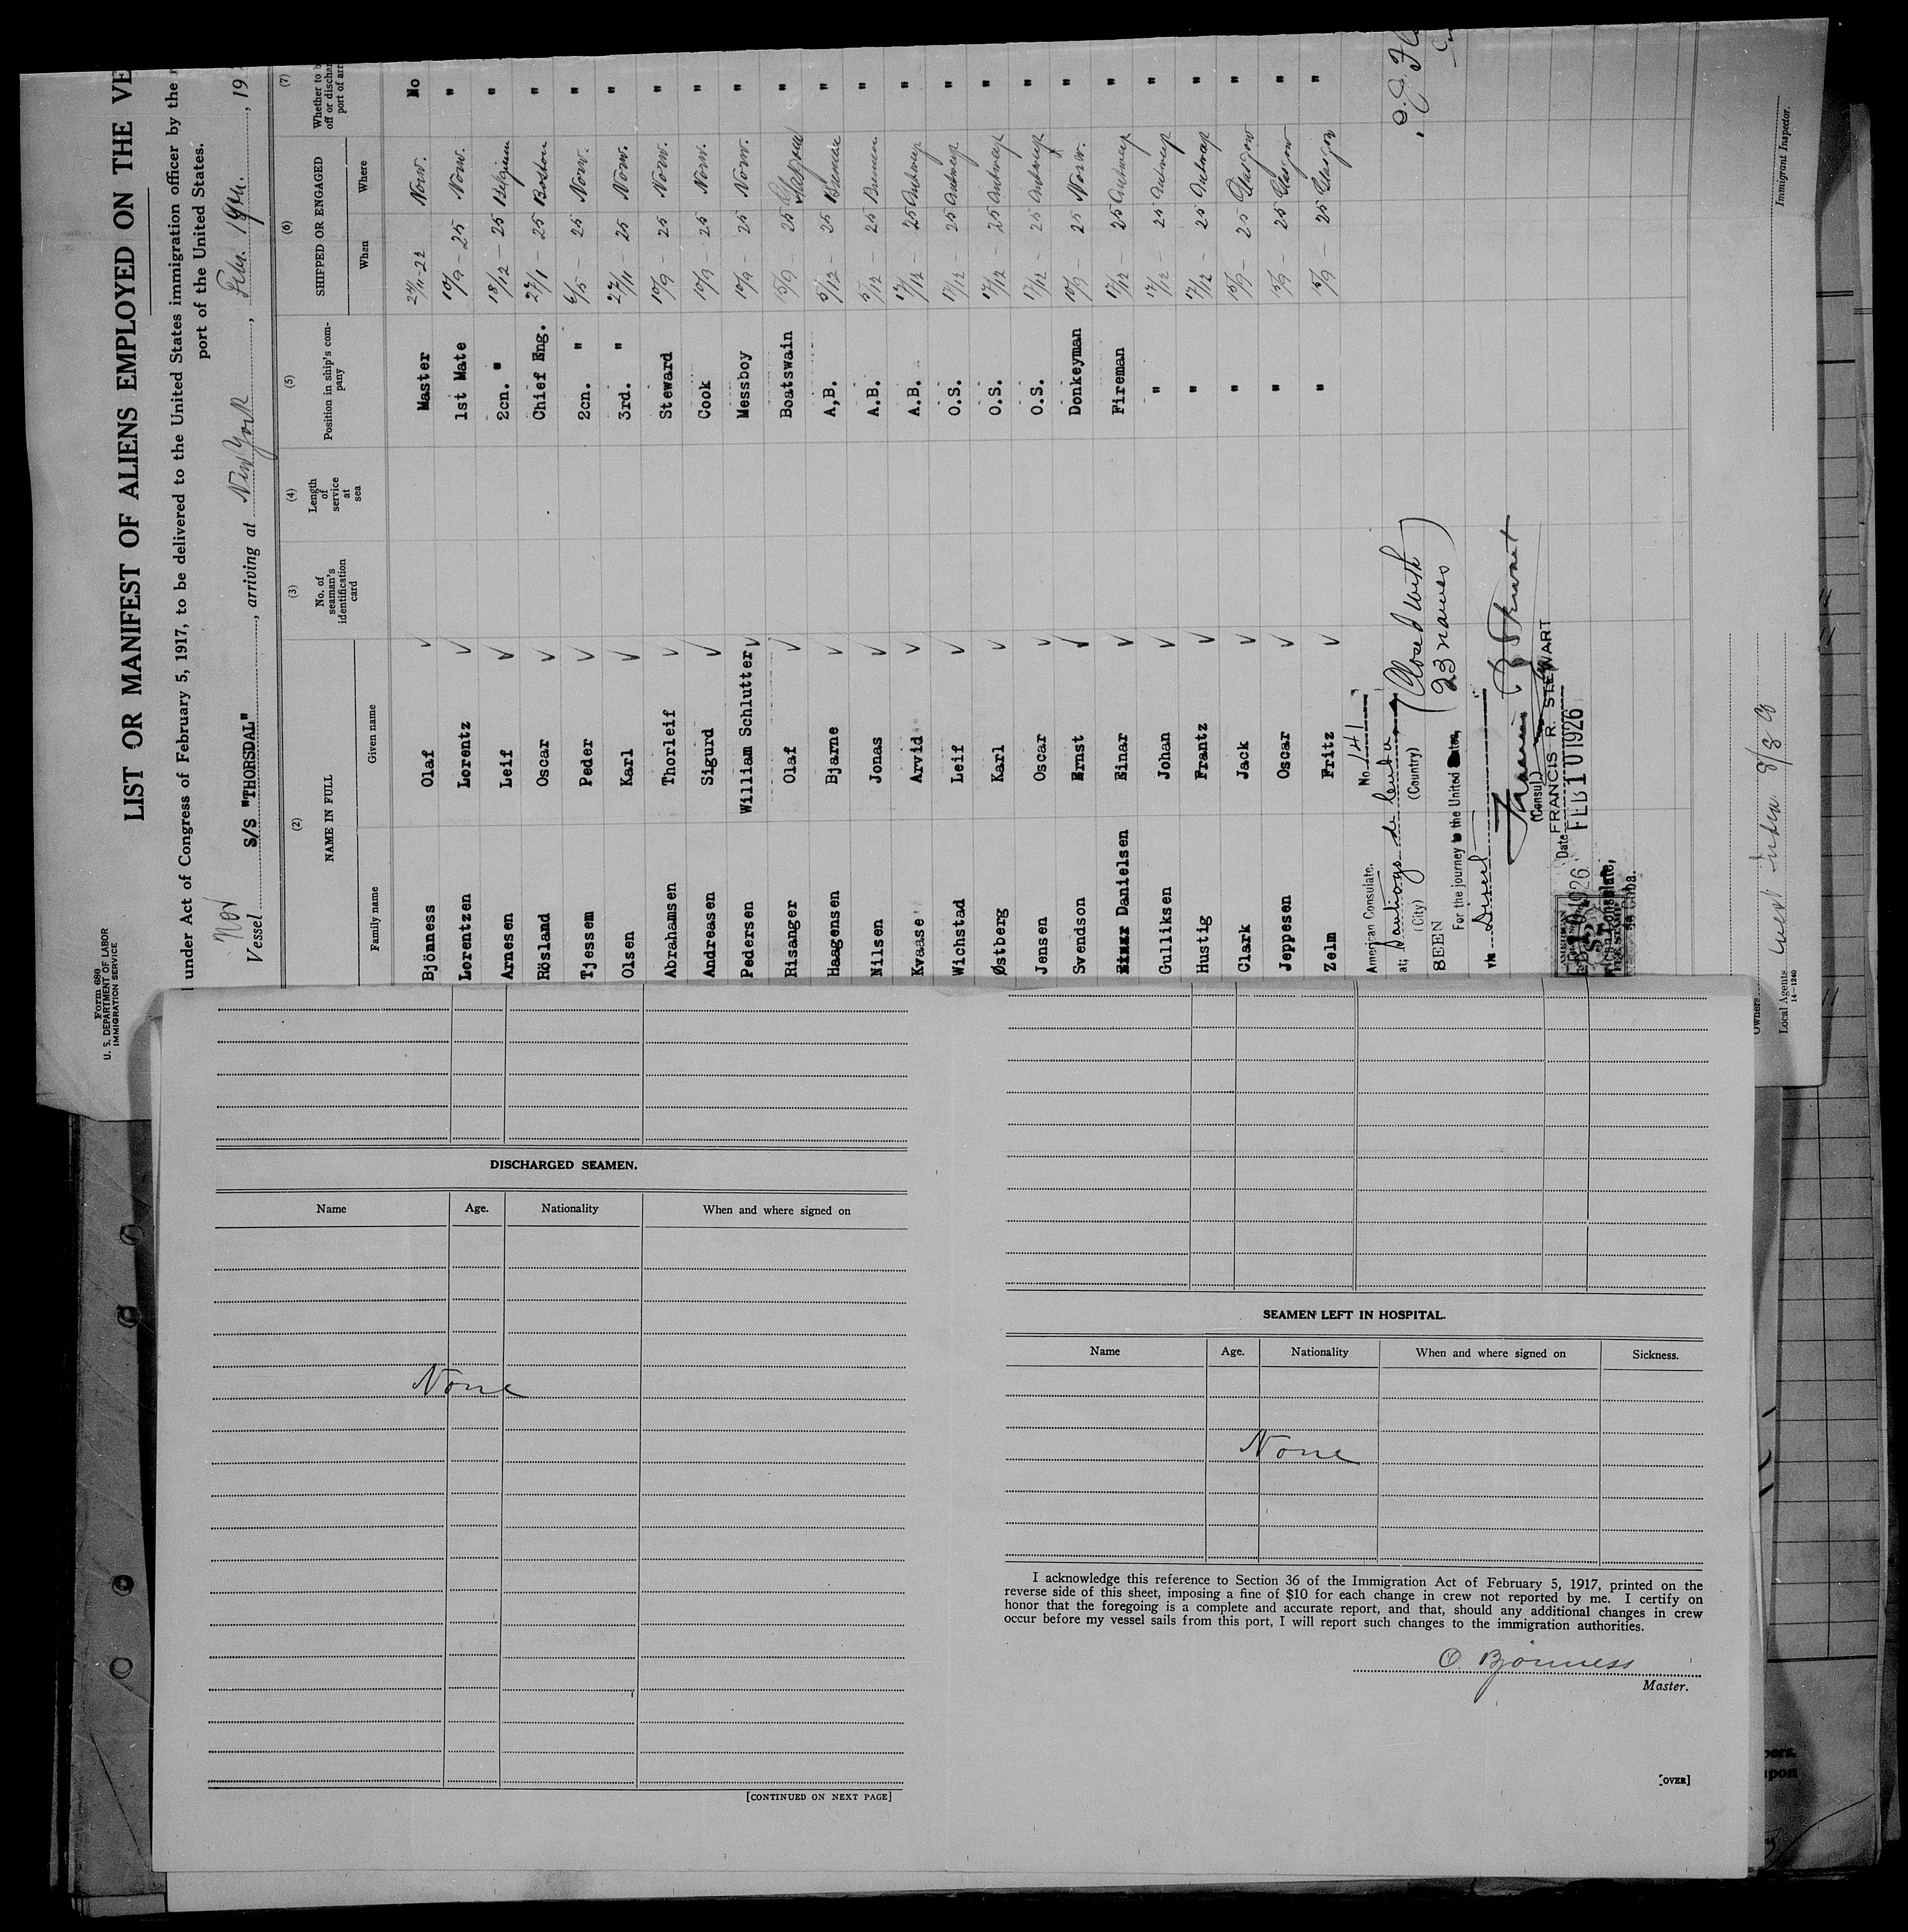 Form 680
U. S. DEPARTMENT OF LABOR
IMMIGRATION SERVICE
LIST OR MANIFEST OF ALIENS EMPLOYED ON THE VE
under Act of Congress of February 5, 1917, to be delivered to the United States immigration officer by the
port of the United States.
Nor
Vessel S/S "THORSDAL", arriving at New York, Febr. 19th., 19
(2) (3) (4) (5) (6) (7)
NAME IN FULL
No. of seaman's identification card
Length of service at sea
Position in ship's company
SHIPPED OR ENGAGED
Family name Given name When Where
Bjönness Olaf Master 24/11-22 Norw. No
Lorentzen Lorentz 1st Mate 10/9 - 25 Norw. "
Arnesen Leif 2cn. " 18/12 - 25 Belgium "
Rösland Oscar Chief Eng. 27/1 - 25 Boston "
Tjessem Peder 2cn. " 6/5 - 25 Norw. "
Olsen Karl 3rd. " 27/11 - 25 Norw. "
Abrahamsen Thorleif Steward 10/9 - 25 Norw. "
Andreasen Sigurd Cook 10/9 - 25 Norw. "
Pedersen William Schlutter Messboy 10/9 - 25 Norw. "
Risanger Olaf Boatswain 15/9 - 25 "
Haagensen Bjarne A,B. 5/12 - 25 "
Nilsen Jonas A.B. 5/12 - 25 Bremen "
Kvaase Arvid A.B. 17/12 - 25 Antwerp "
Wichstad Leif O.S. 17/12 - 25 Antwerp "
Østberg Karl O.S. 17/12 - 25 Antwerp "
Jensen Oscar O.S. 17/12 - 25 Antwerp "
Svendson Ernst Donkeyman 10/9 - 25 Norw. "
Danielsen Einar Fireman 17/12 - 25 Antwerp "
Gulliksen Johan " 17/12 - 25 Antwerp "
Hustig Frantz " 17/12 - 25 Antwerp "
Clark Jack " 15/9 - 25 Glasgow "
Jeppesen Oscar " 15/9 - 25 Glasgow "
Zelm Fritz " 15/9 - 25 Glasgow "
American Consulate. No. 141
at; Santiago de Cuba
(City) (Country)
(Closed with
23 names)
SEEN
For the journey to the United
via Direct
(Consul)
FRANCIS R. STEWART
Date FEB 10 1926
Owners
Local Agents West India
14—1240
Immigrant Inspector.
DISCHARGED SEAMEN.
Name Age. Nationality When and where signed on
None
[CONTINUED ON NEXT PAGE]
SEAMEN LEFT IN HOSPITAL.
Name Age. Nationality When and where signed on Sickness.
None
I acknowledge this reference to Section 36 of the Immigration Act of February 5, 1917, printed on the
reverse side of this sheet, imposing a fine of $10 for each change in crew not reported by me. I certify on
honor that the foregoing is a complete and accurate report, and that, should any additional changes in crew
occur before my vessel sails from this port, I will report such changes to the immigration authorities.
O. Bjönness
Master.
[OVER]